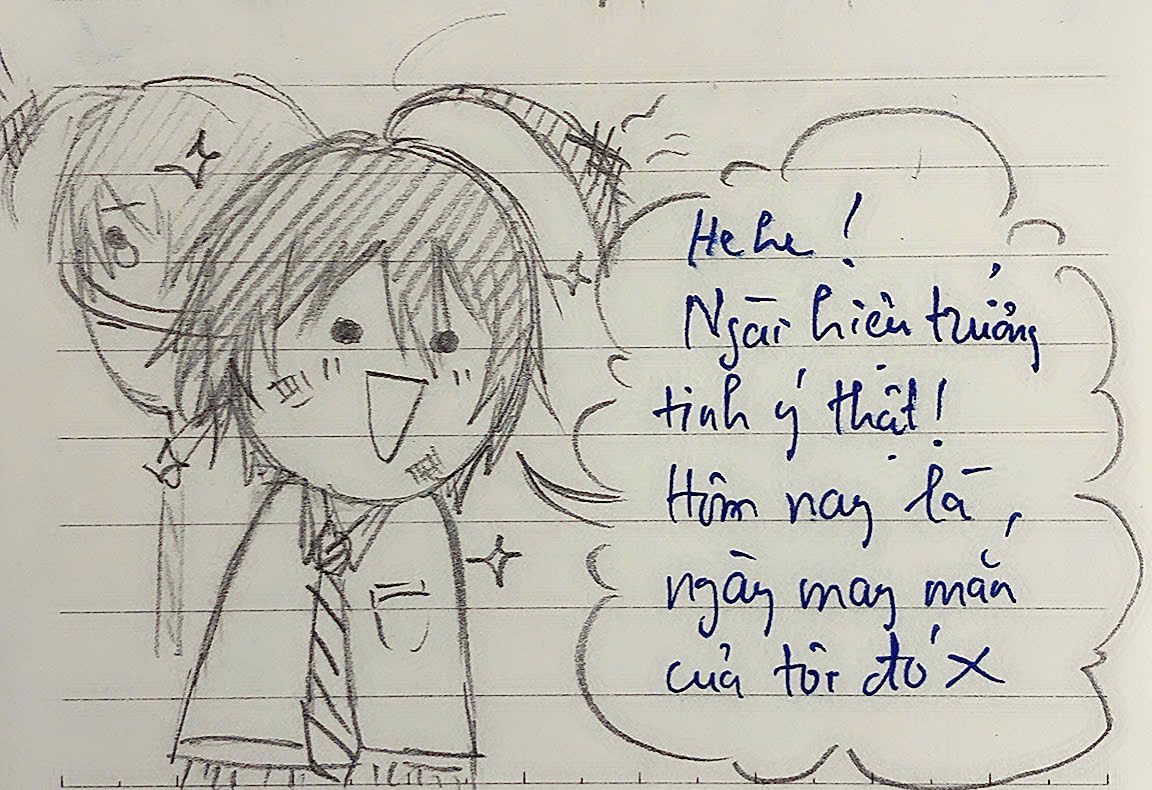 Hehe!
Ngài hiệu trưởng
tinh ý thật!
Hôm nay là
ngày may mắn
của tôi đó X